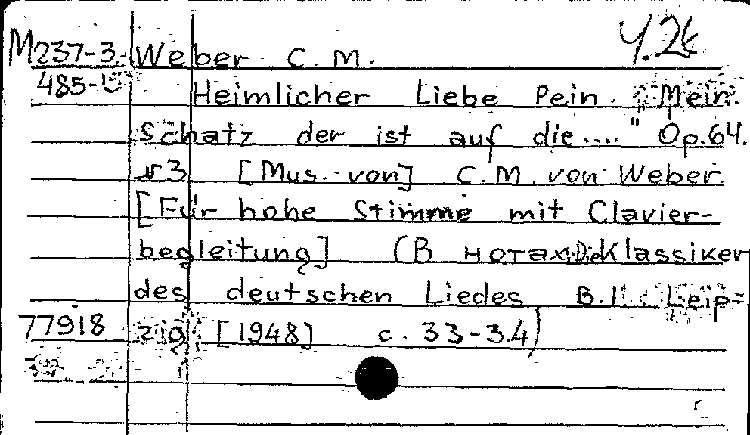 M237-3 Weber C. M. 4.2к
485-
Heimlicher Liebe Pein. "Mein
Schatz der ist auf die...." Op.64.
№3 [Mus. von] C.M. von Weber.
[Für hohe Stimme mit Clavier-
begleitung] (В нотах: Die Klassiker
des deutschen Liedes B.I. Leip-
77918 zig [1948] c. 33-34)